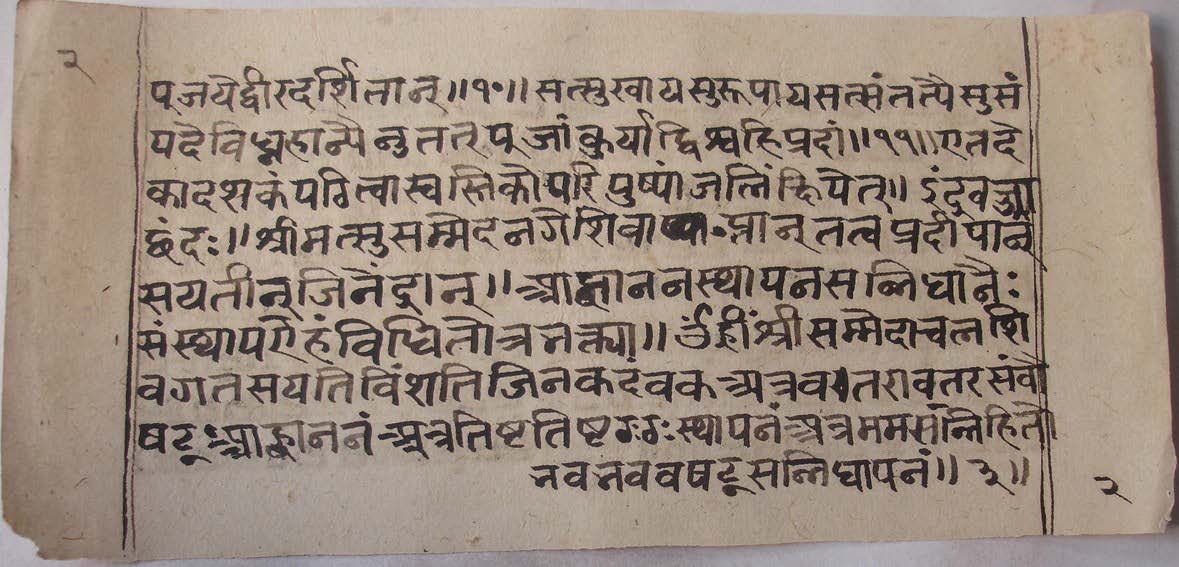 २
पूजयेद्वीरदर्शितान् ॥१०॥ सत्सुखाय सुरूपाय सत्संतत्यै सुसं
पदे विघ्नहान्यै नु तत् पूजां कुर्याद्विश्वहिप्रदां ॥११॥ एतदे
कादशकं पठित्वा स्वस्तिकोपरि पुष्पांजलिं क्षिपेत् ॥ इंद्रवज्रा
छंदः ॥ श्रीमत्सुसम्मेदनगे शिवाप्तान् तत्वप्रदीपान्
सयतीन् जिनेंद्रान् ॥ आह्वाननस्थापनसन्निधानैः
संस्थापये हं विधितोत्र भक्त्या ॥ ॐ ह्रीं श्री सम्मेदाचलशि
वगतसयतिविंशतिजिनकदंबक अत्रावतरावतर संवौ
षट् आह्वाननं अत्र तिष्ट तिष्ट ठः ठः स्थापनं अत्र मम सन्निहितो
भव भव वषट् सन्निधापनं ॥ ३ ॥
२